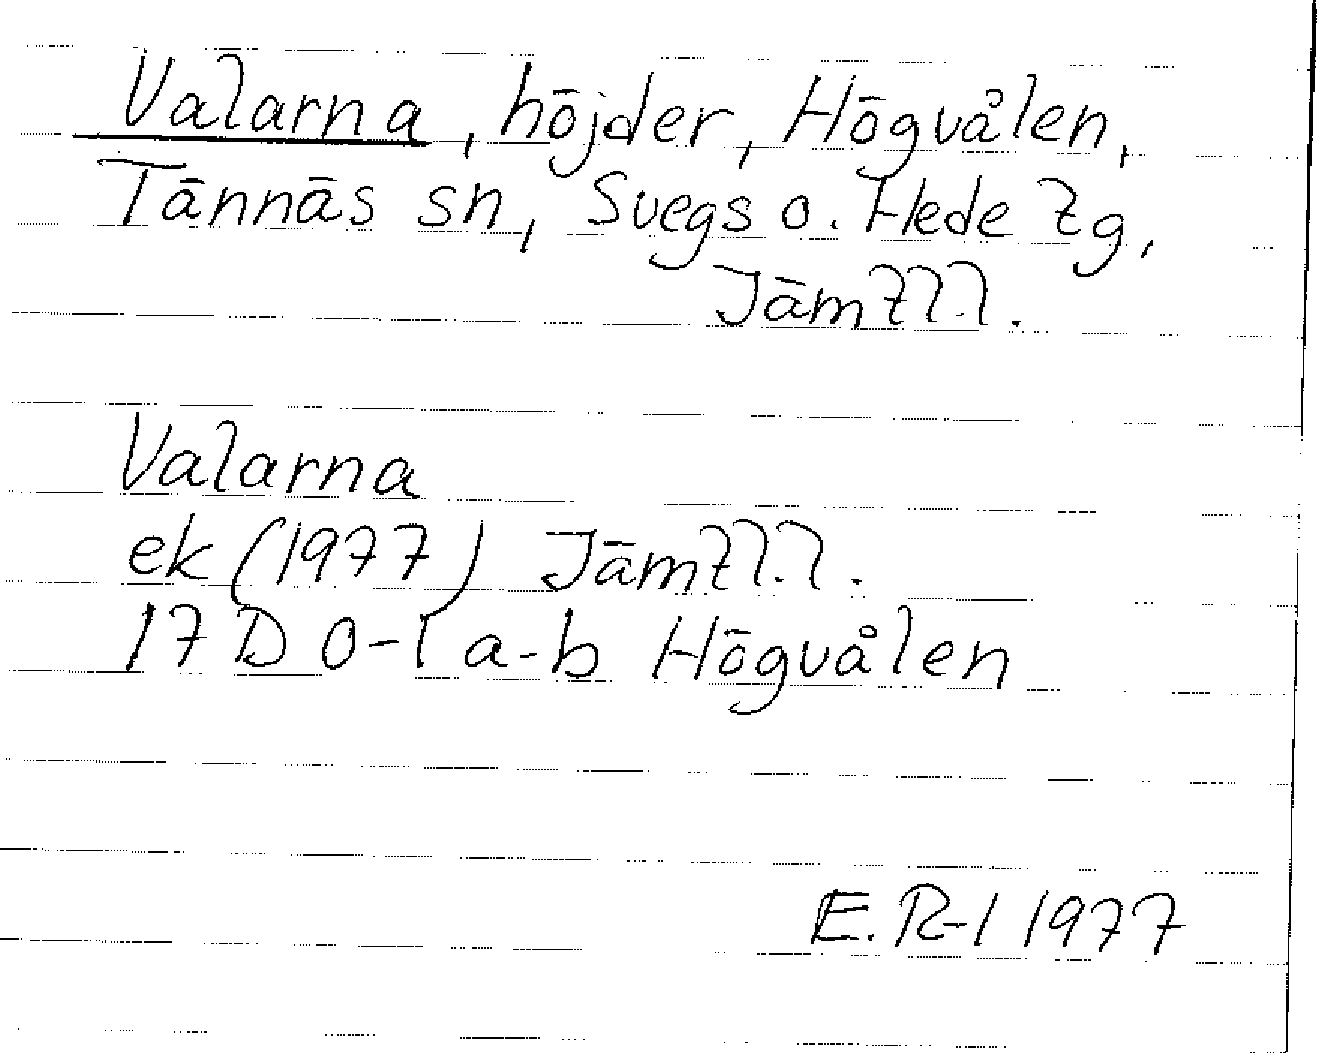 Valarna, höjder, Högvålen,
Tännäs sn, Svegs o. Hede tg,
Jämtl.l.
Valarna
ek (1977) Jämtl.l.
17 D 0-1 a-b Högvålen
E. R-l 1977